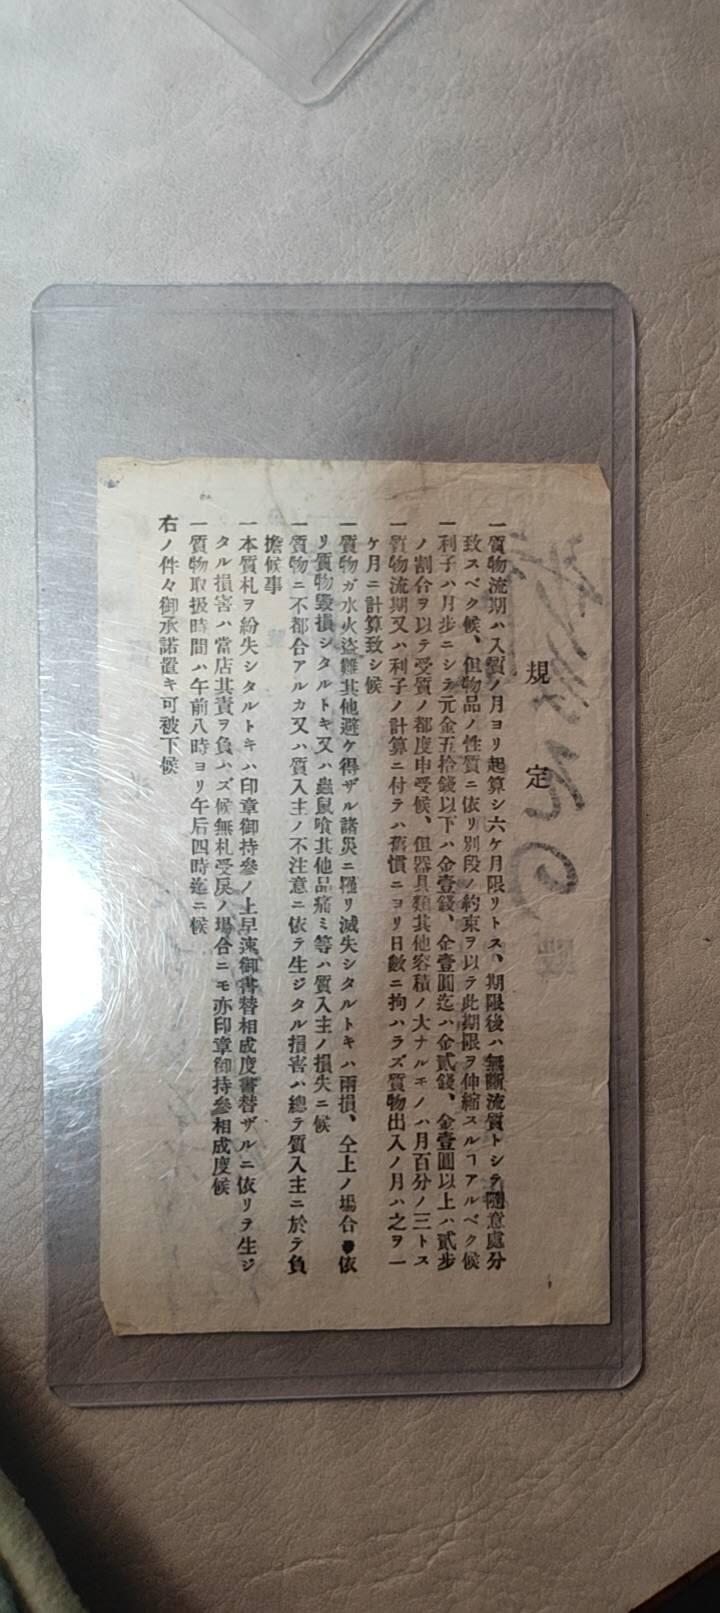 規定
一質物流期ハ入質ノ月ヨリ起算シ六ケ月限リトス、期限後ハ無斷流質トシテ隨意處分
致スベク候、但物品ノ性質ニ依リ別段ノ約束ヲ以テ此期限ヲ伸縮スルヿアルベク候
一利子ハ月歩ニシテ元金五拾錢以下ハ金壹錢、金壹圓迄ハ金貳錢、金壹圓以上ハ貳歩
ノ割合ヲ以テ受質ノ都度申受候、但器具類其他容積ノ大ナルモノハ月百分ノ三トス
一質物流期又ハ利子ノ計算ニ付テハ舊慣ニヨリ日數ニ拘ハラズ質物出入ノ月ハ之ヲ一
ケ月ニ計算致シ候
一質物ガ水火盜難其他避ケ得ザル諸災ニ罹リ滅失シタルトキハ兩損、仝上ノ場合●依
リ質物毀損シタルトキ又ハ蟲鼠喰其他品痛ミ等ハ質入主ノ損失ニ候
一質物ニ不都合アルカ又ハ質入主ノ不注意ニ依テ生ジタル損害ハ總テ質入主ニ於テ負
擔候事
一本質札ヲ紛失シタルトキハ印章御持參ノ上早速御書替相成度書替ザルニ依リテ生ジ
タル損害ハ當店其責ヲ負ハズ候無札受戻ノ場合ニモ亦印章御持參相成度候
一質物取扱時間ハ午前八時ヨリ午后四時迄ニ候
右ノ件々御承諾置キ可被下候